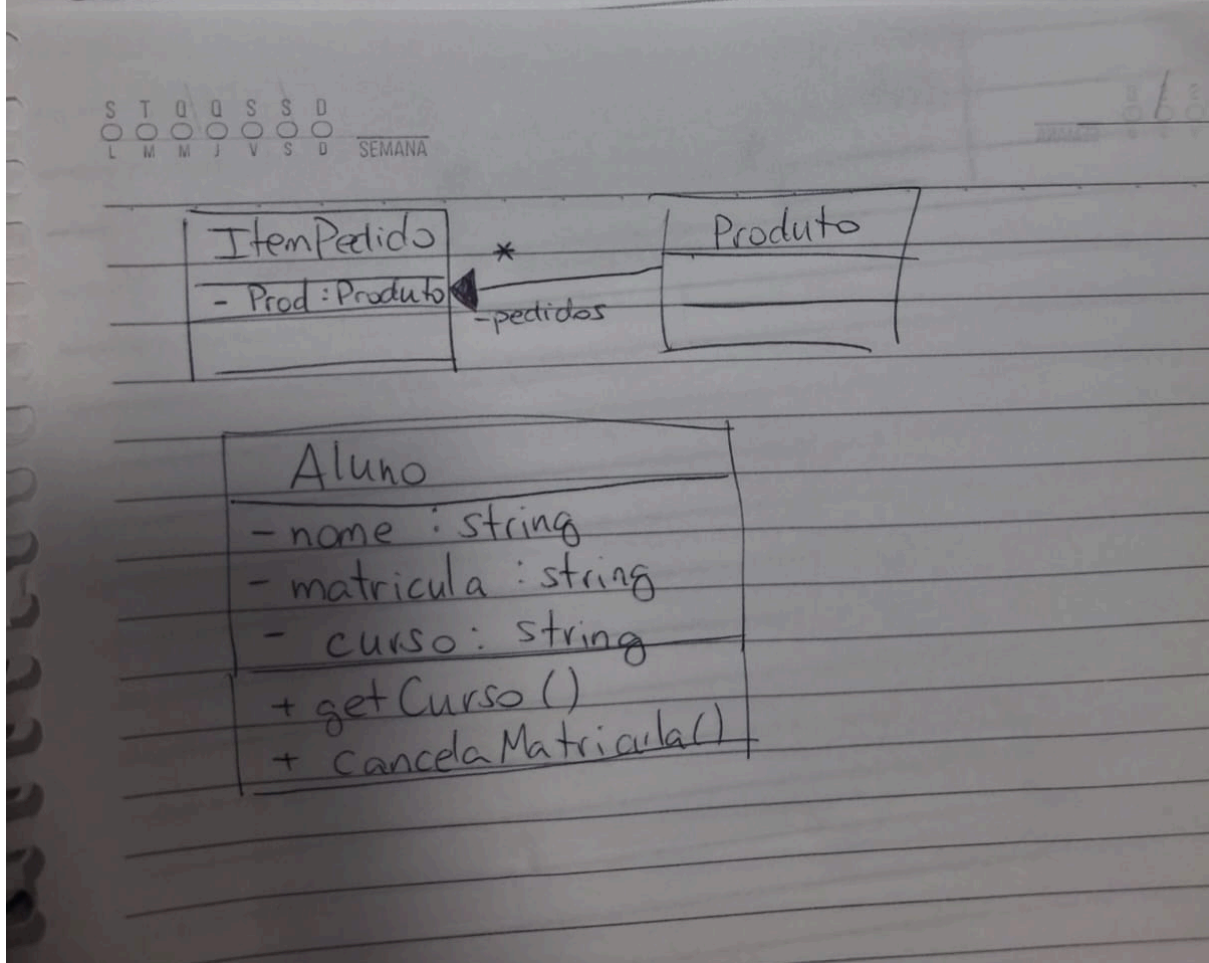 S T Q Q S S D
L M M J V S D SEMANA
ItemPedido
*
Produto
- Prod : Produto
-pedidos
Aluno
- nome : string
- matricula : string
- curso : string
+ getCurso ()
+ cancelaMatricula()